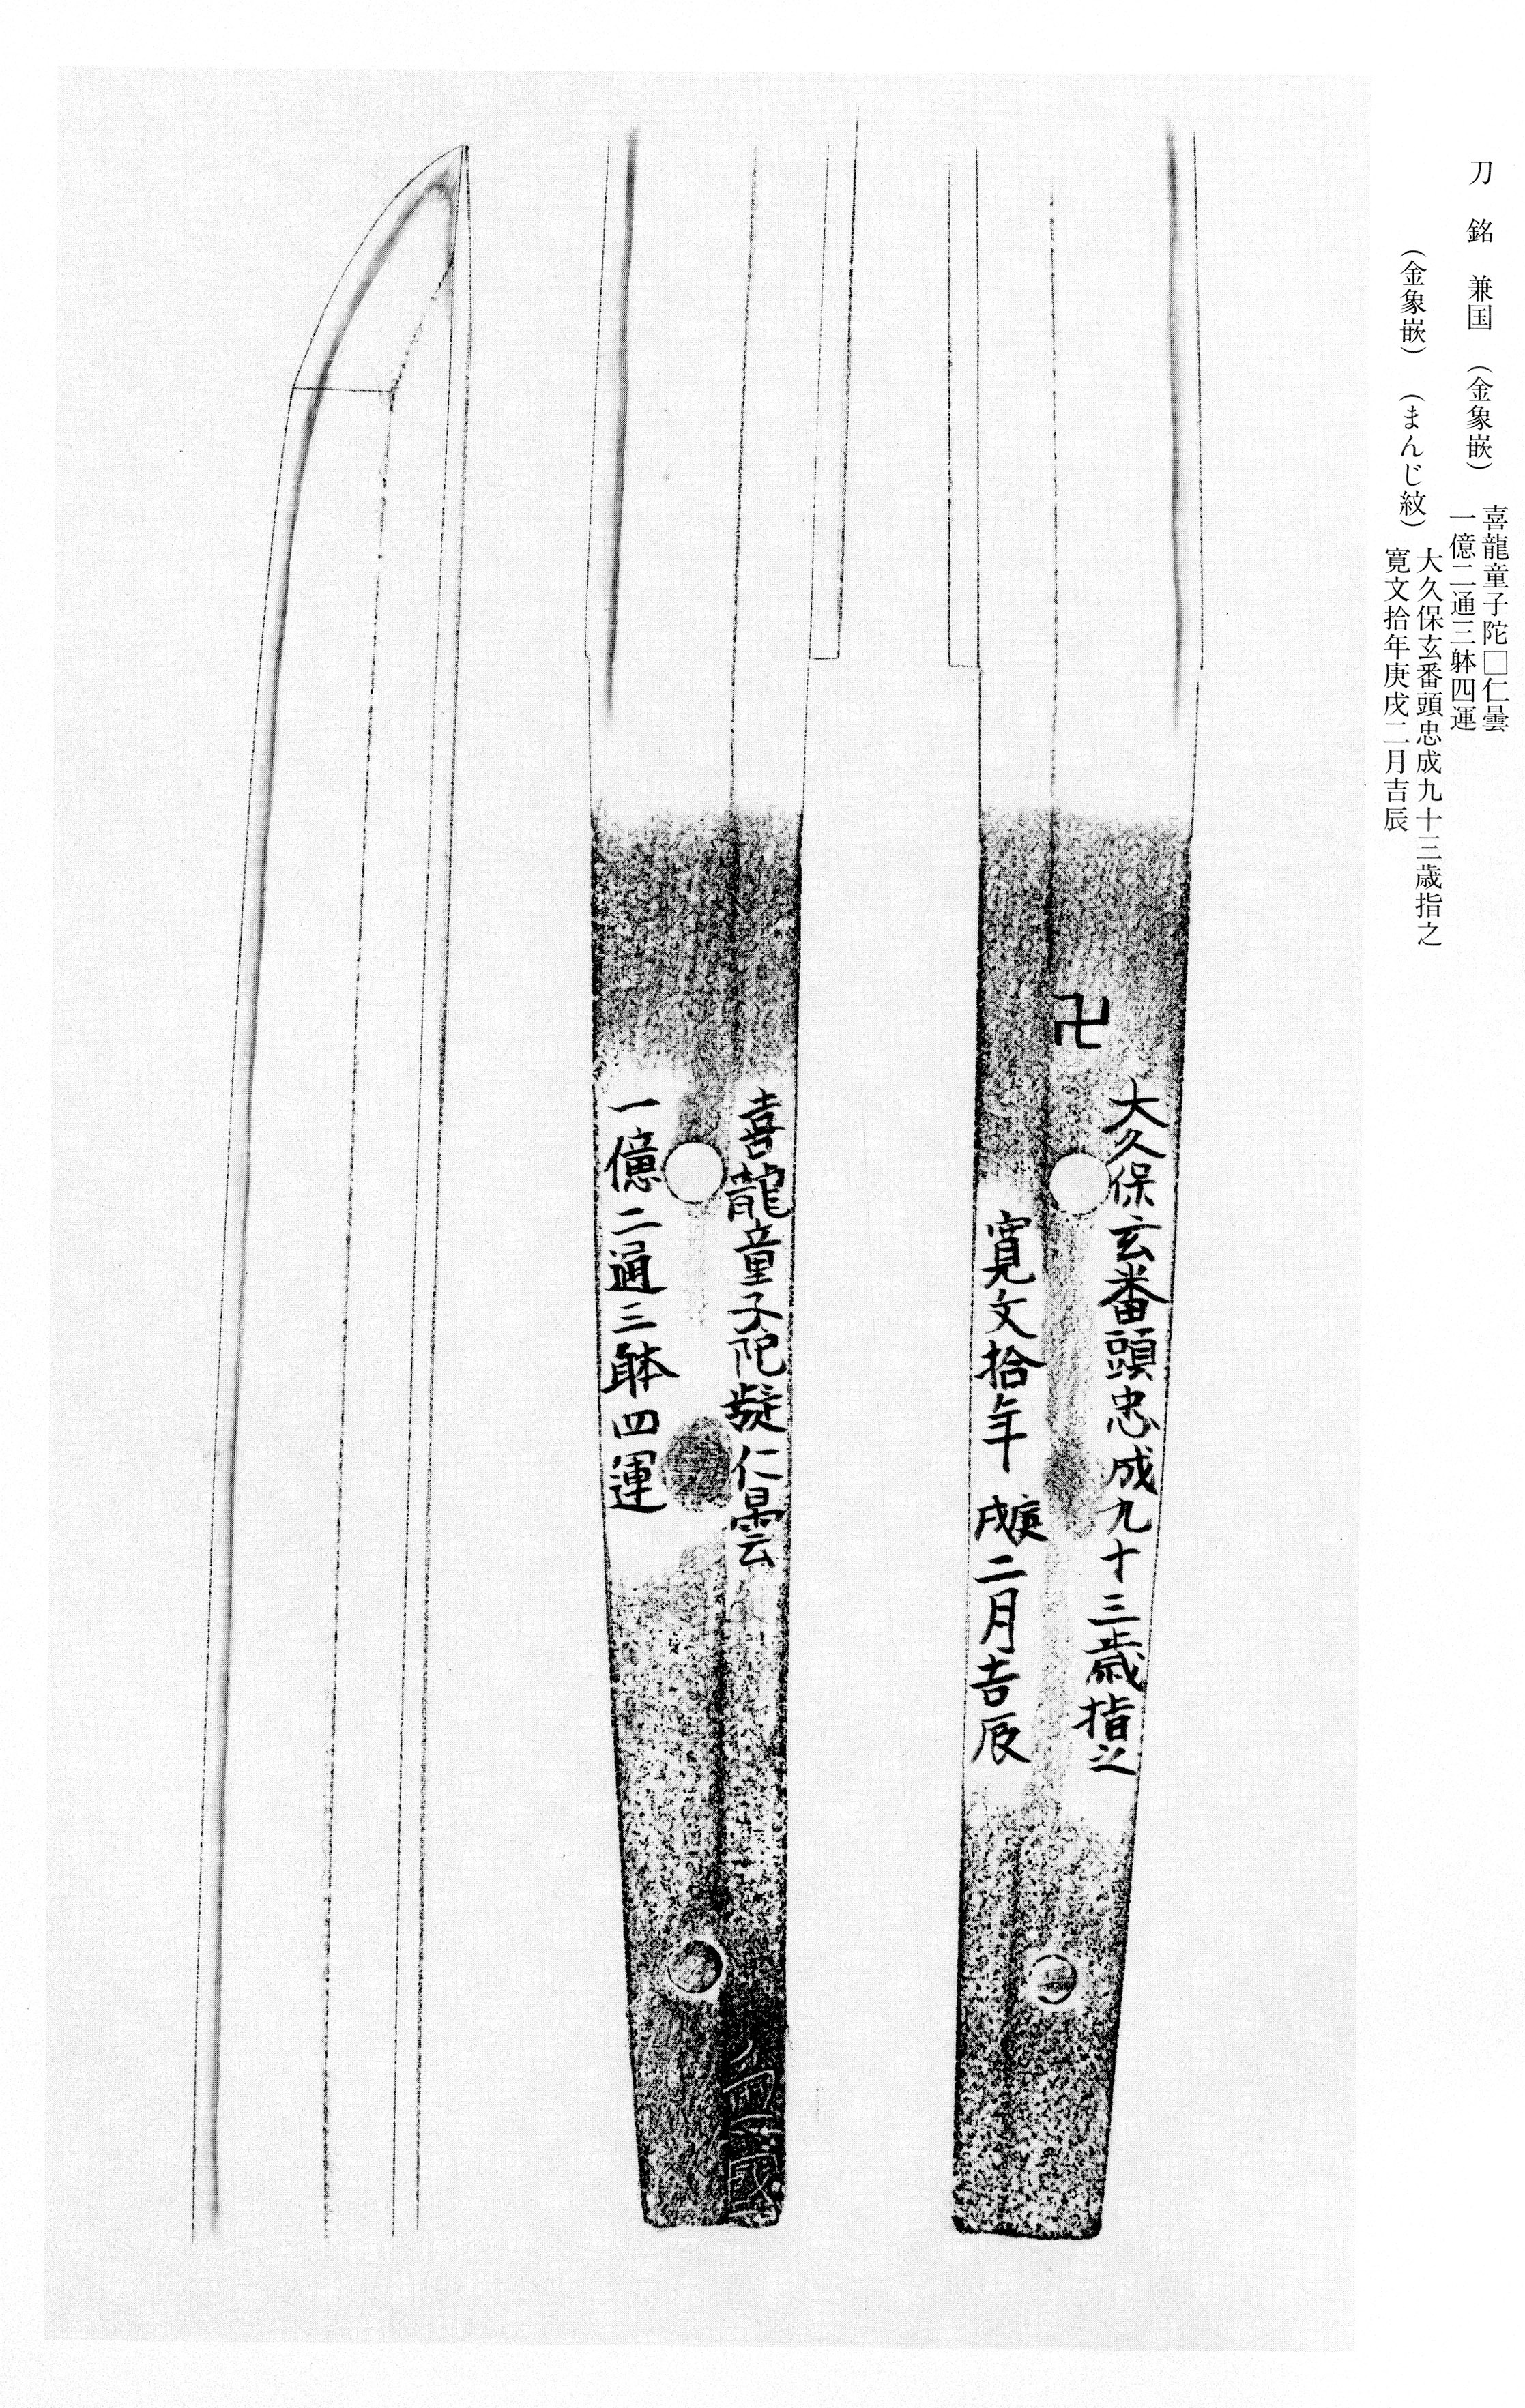 刀 銘 兼国 (金象嵌) 喜龍童子陀□仁曇
一億二通三躰四運
(金象嵌) (まんじ紋) 大久保玄番頭忠成九十三歳指之
寛文拾年庚戌二月吉辰
卍
大久保玄番頭忠成九十三歳指之
寛文拾年庚戌二月吉辰
喜龍童子陀仁曇
一億二通三躰四運
國